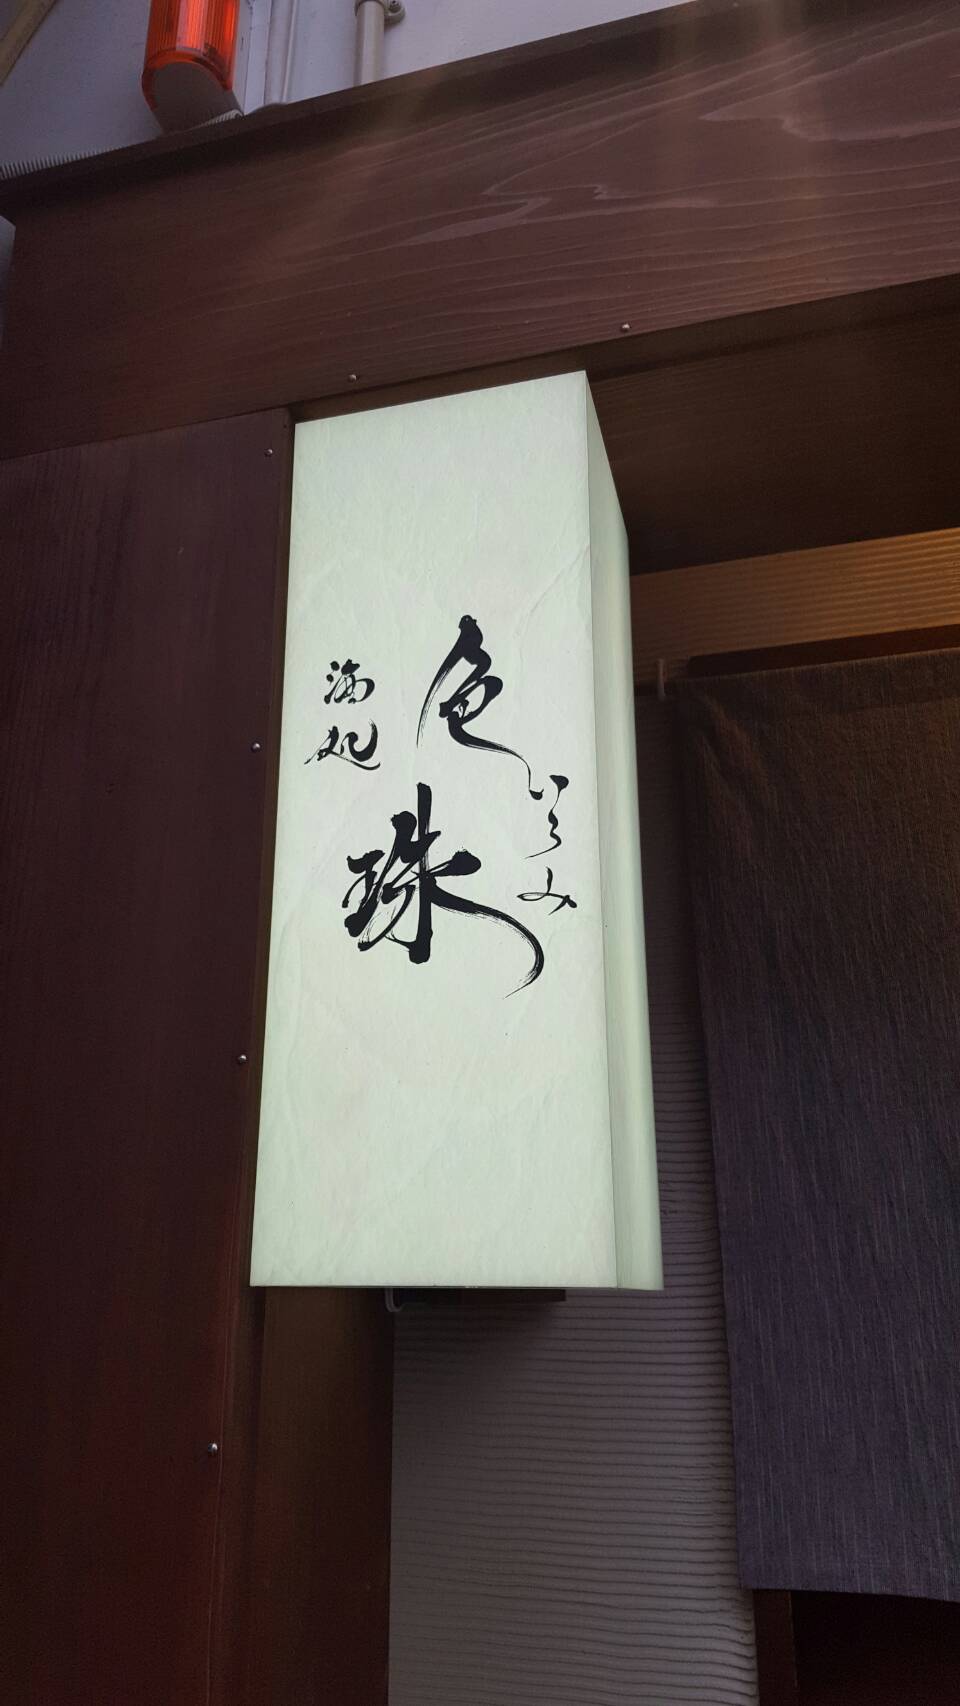 色珠
いろみ
酒処